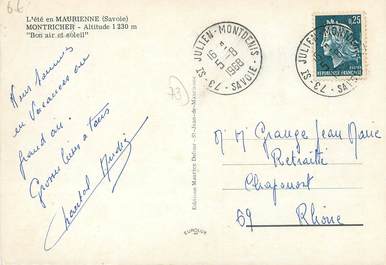 6€
L'été en MAURIENNE (Savoie)
MONTRICHER - Altitude 1 230 m
"Bon air et soleil"
73 - ST JULIEN-MONTDENIS - SAVOIE
16 H
5-8
1968
0,25
REPUBLIQUE FRANÇAISE
73
Nous sommes
en vacances au
grand air.
Grosses bises a tous
Chantal
Editions Maurice Dufour - St-Jean-de-Maurienne
M. M. Grange Jean Marie
Retraité
Chaponost
69 Rhône
EUROLUX